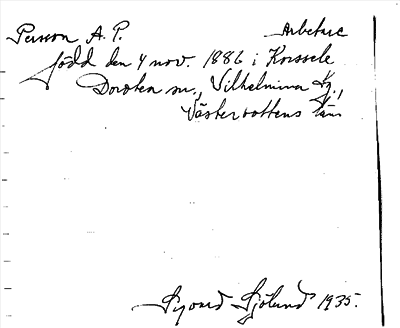 Persson A. P. Arbetare
född den 4 nov. 1886 i Korssele
Dorotea sn., Vilhelmina Kg.,
Västerbottens län
Sigurd Sjölund 1935.